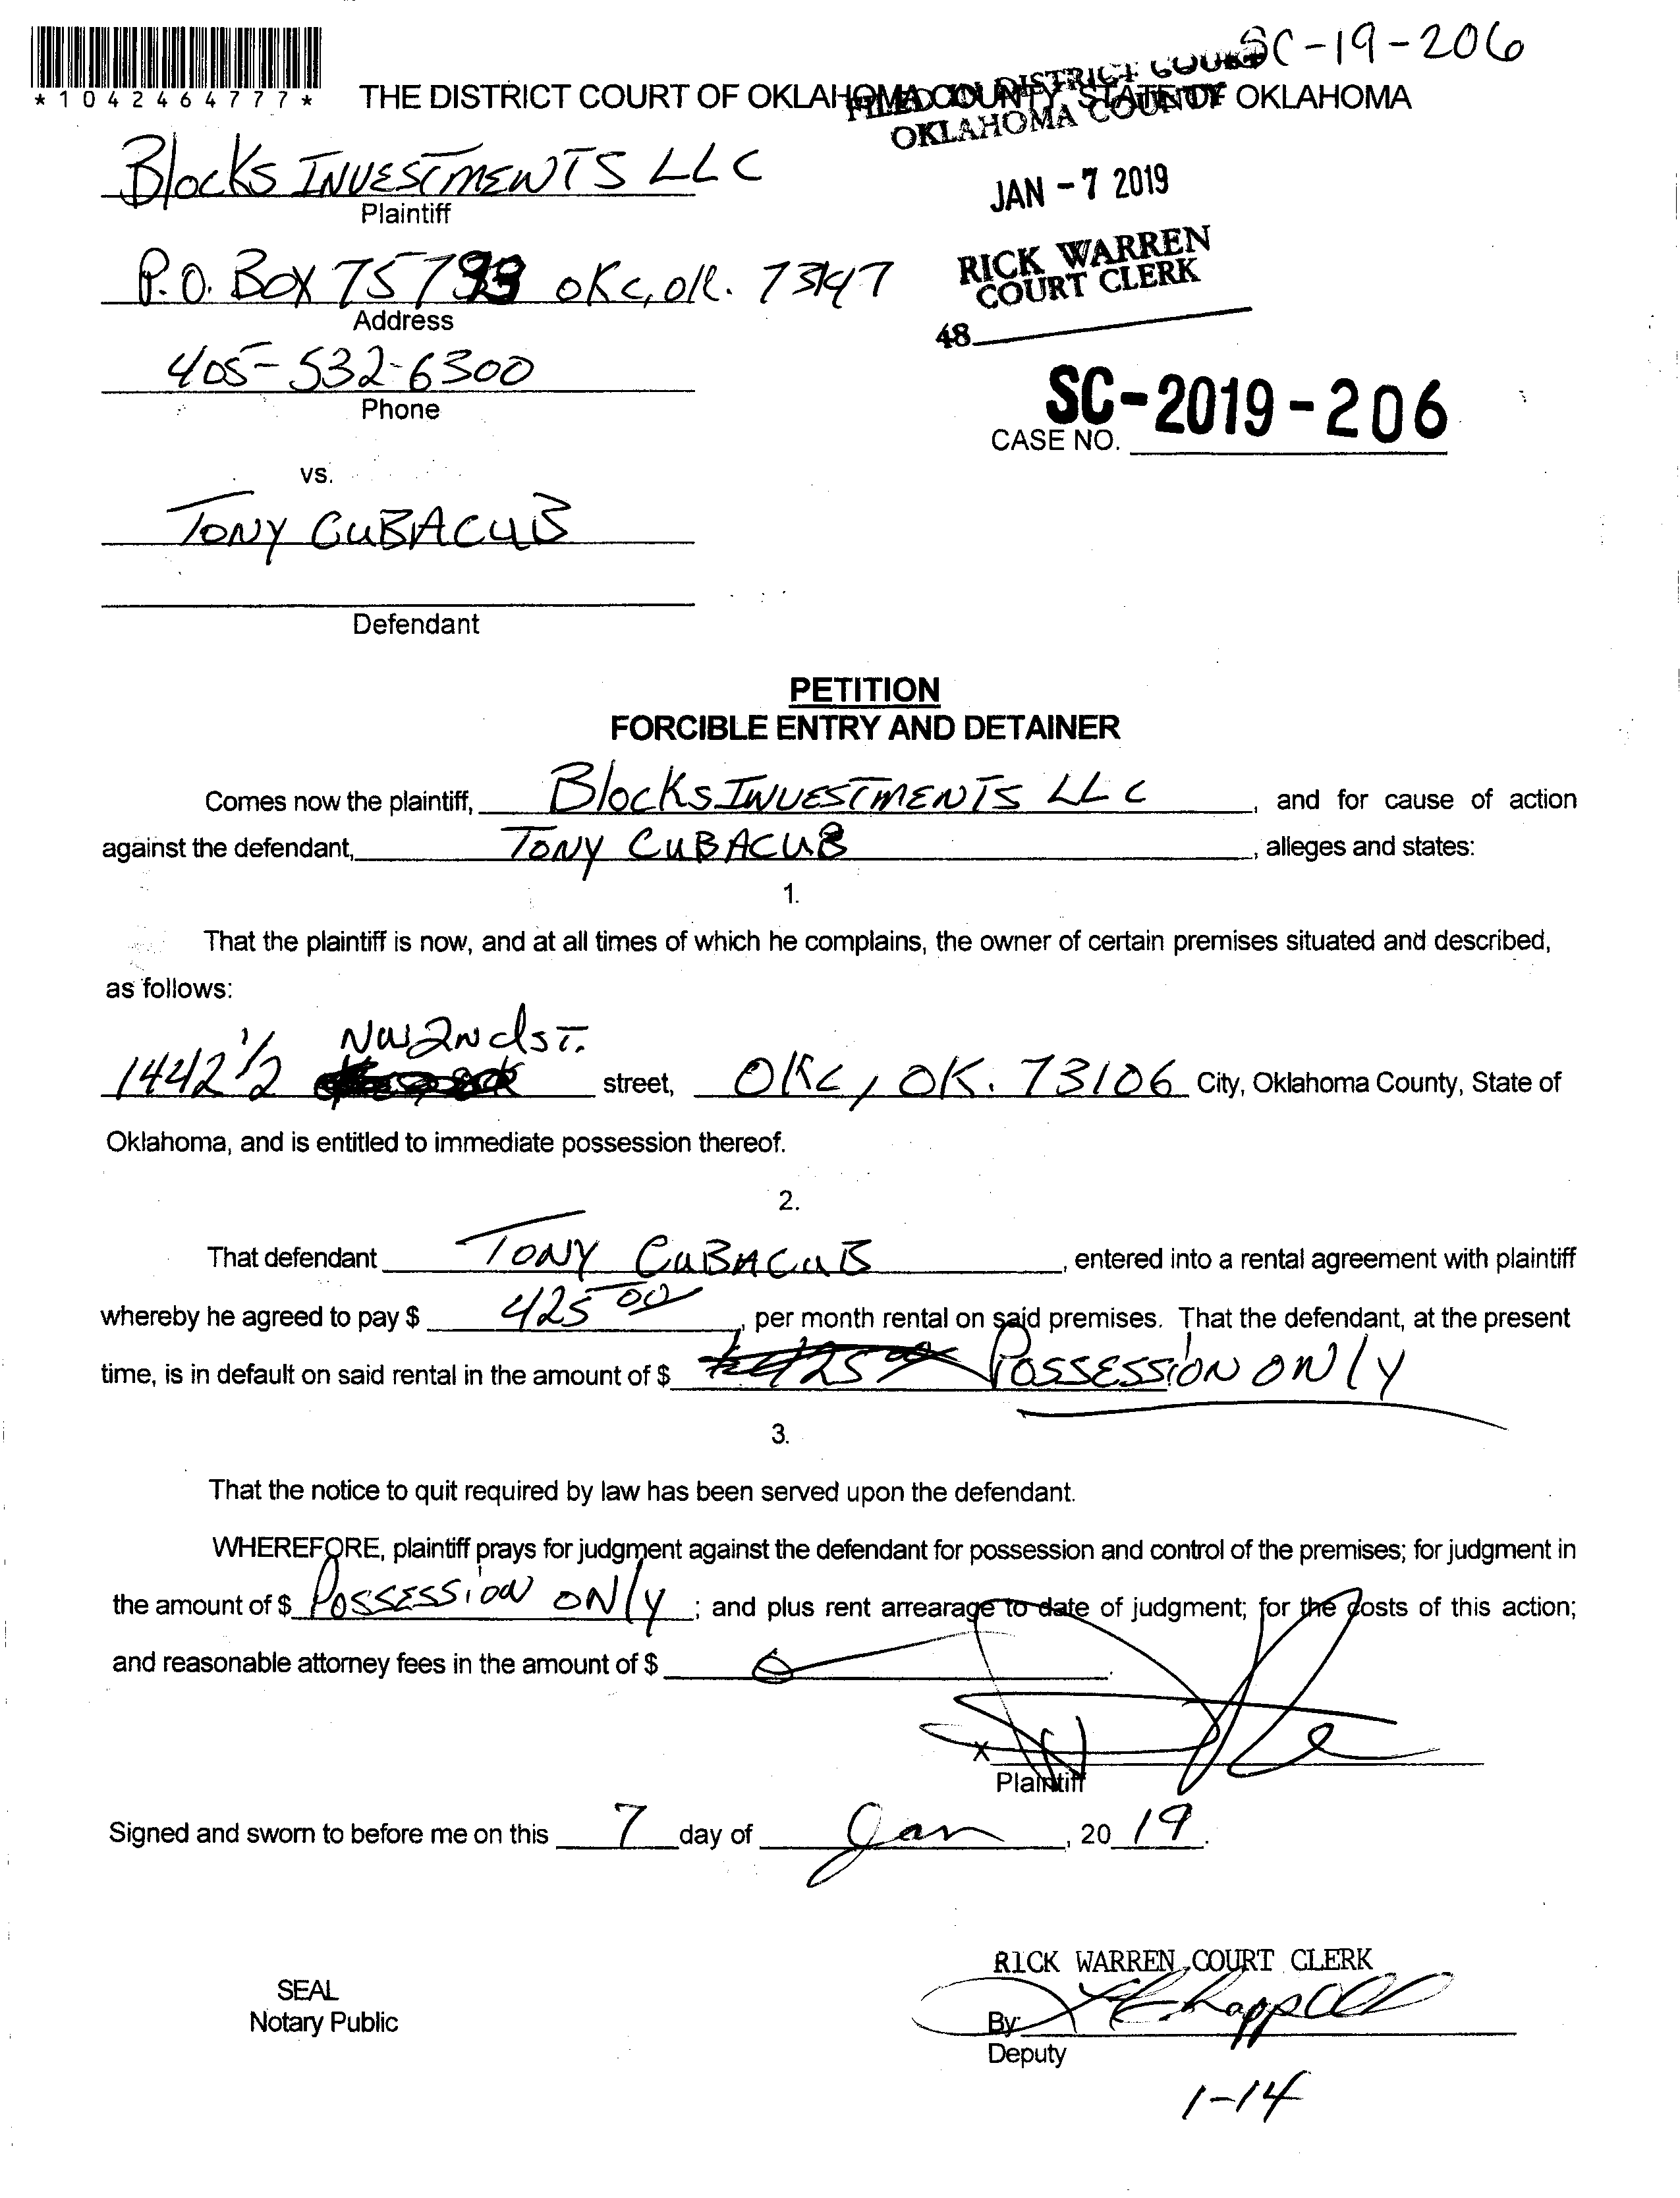 SC-19-206
*1042464777*
THE DISTRICT COURT OF OKLAHOMA COUNTY, STATE OF OKLAHOMA
FILED IN DISTRICT COURT
OKLAHOMA COUNTY
Blocks INVESTMENTS LLC
Plaintiff
JAN - 7 2019
P.O. Box OKC, OK. 73147
Address
RICK WARREN
COURT CLERK
48
405-532-6300
Phone
SC-2019-206
CASE NO.
vs.
TONY CUBACUB
Defendant
PETITION
FORCIBLE ENTRY AND DETAINER
Comes now the plaintiff, Blocks INVESTMENTS LLC, and for cause of action
against the defendant, TONY CUBACUB, alleges and states:
1.
That the plaintiff is now, and at all times of which he complains, the owner of certain premises situated and described,
as follows:
NW 2Nd ST.
1442 1/2 street, OKC, OK. 73106 City, Oklahoma County, State of
Oklahoma, and is entitled to immediate possession thereof.
2.
That defendant TONY CUBACUB, entered into a rental agreement with plaintiff
whereby he agreed to pay $ 425 00, per month rental on said premises. That the defendant, at the present
time, is in default on said rental in the amount of $ POSSESSION ONLY
3.
That the notice to quit required by law has been served upon the defendant.
WHEREFORE, plaintiff prays for judgment against the defendant for possession and control of the premises; for judgment in
the amount of $ POSSESSION ONLY; and plus rent arrearage to date of judgment; for the costs of this action;
and reasonable attorney fees in the amount of $
X
Plaintiff
Signed and sworn to before me on this 7 day of Jan, 20 19.
RICK WARREN, COURT CLERK
SEAL
Notary Public
By:
Deputy
1-14